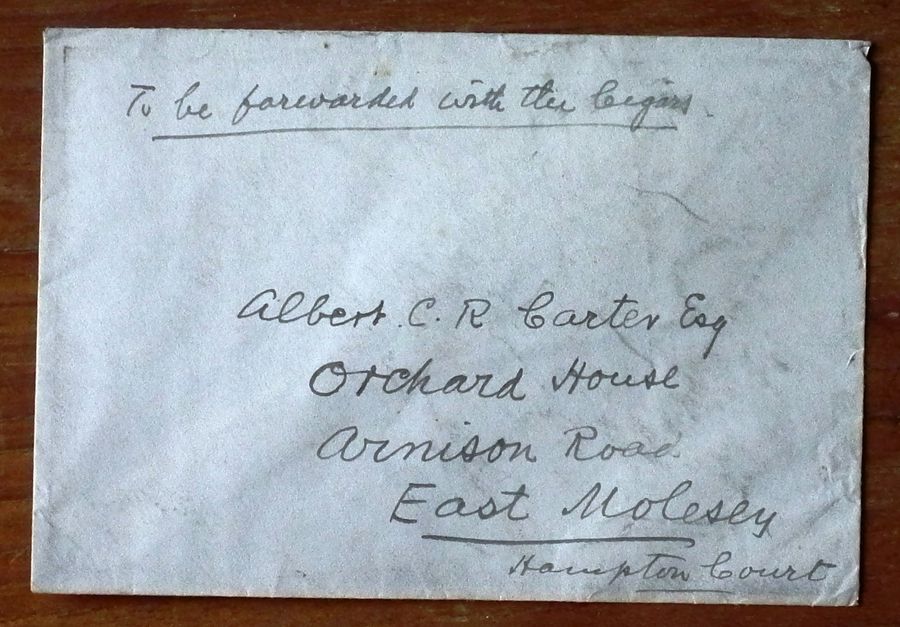 To be forwarded with the Cigars
Albert. C. R Carter Esq
Orchard House
Arnison Road
East Molesey
Hampton Court